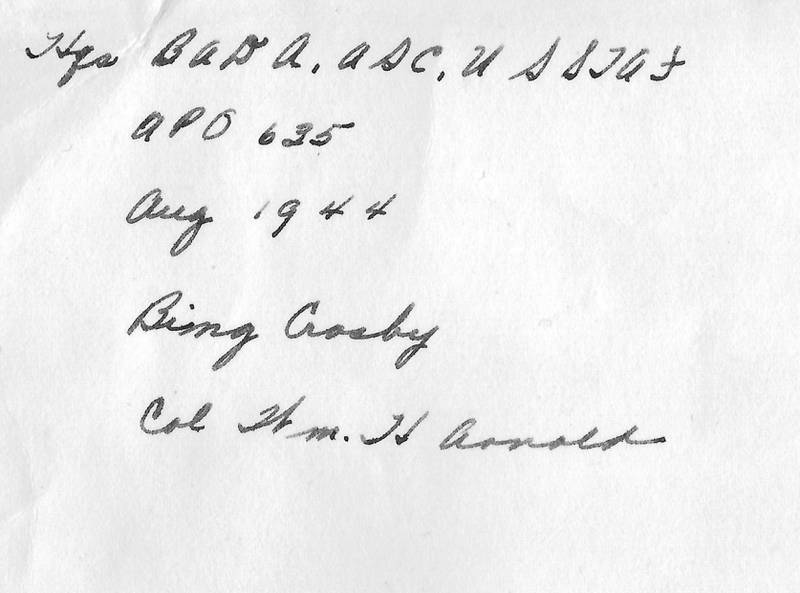 Hqs BAD A, ASC, U S STAF
APO 635
Aug 1944
Bing Crosby
Col Wm. H Arnold